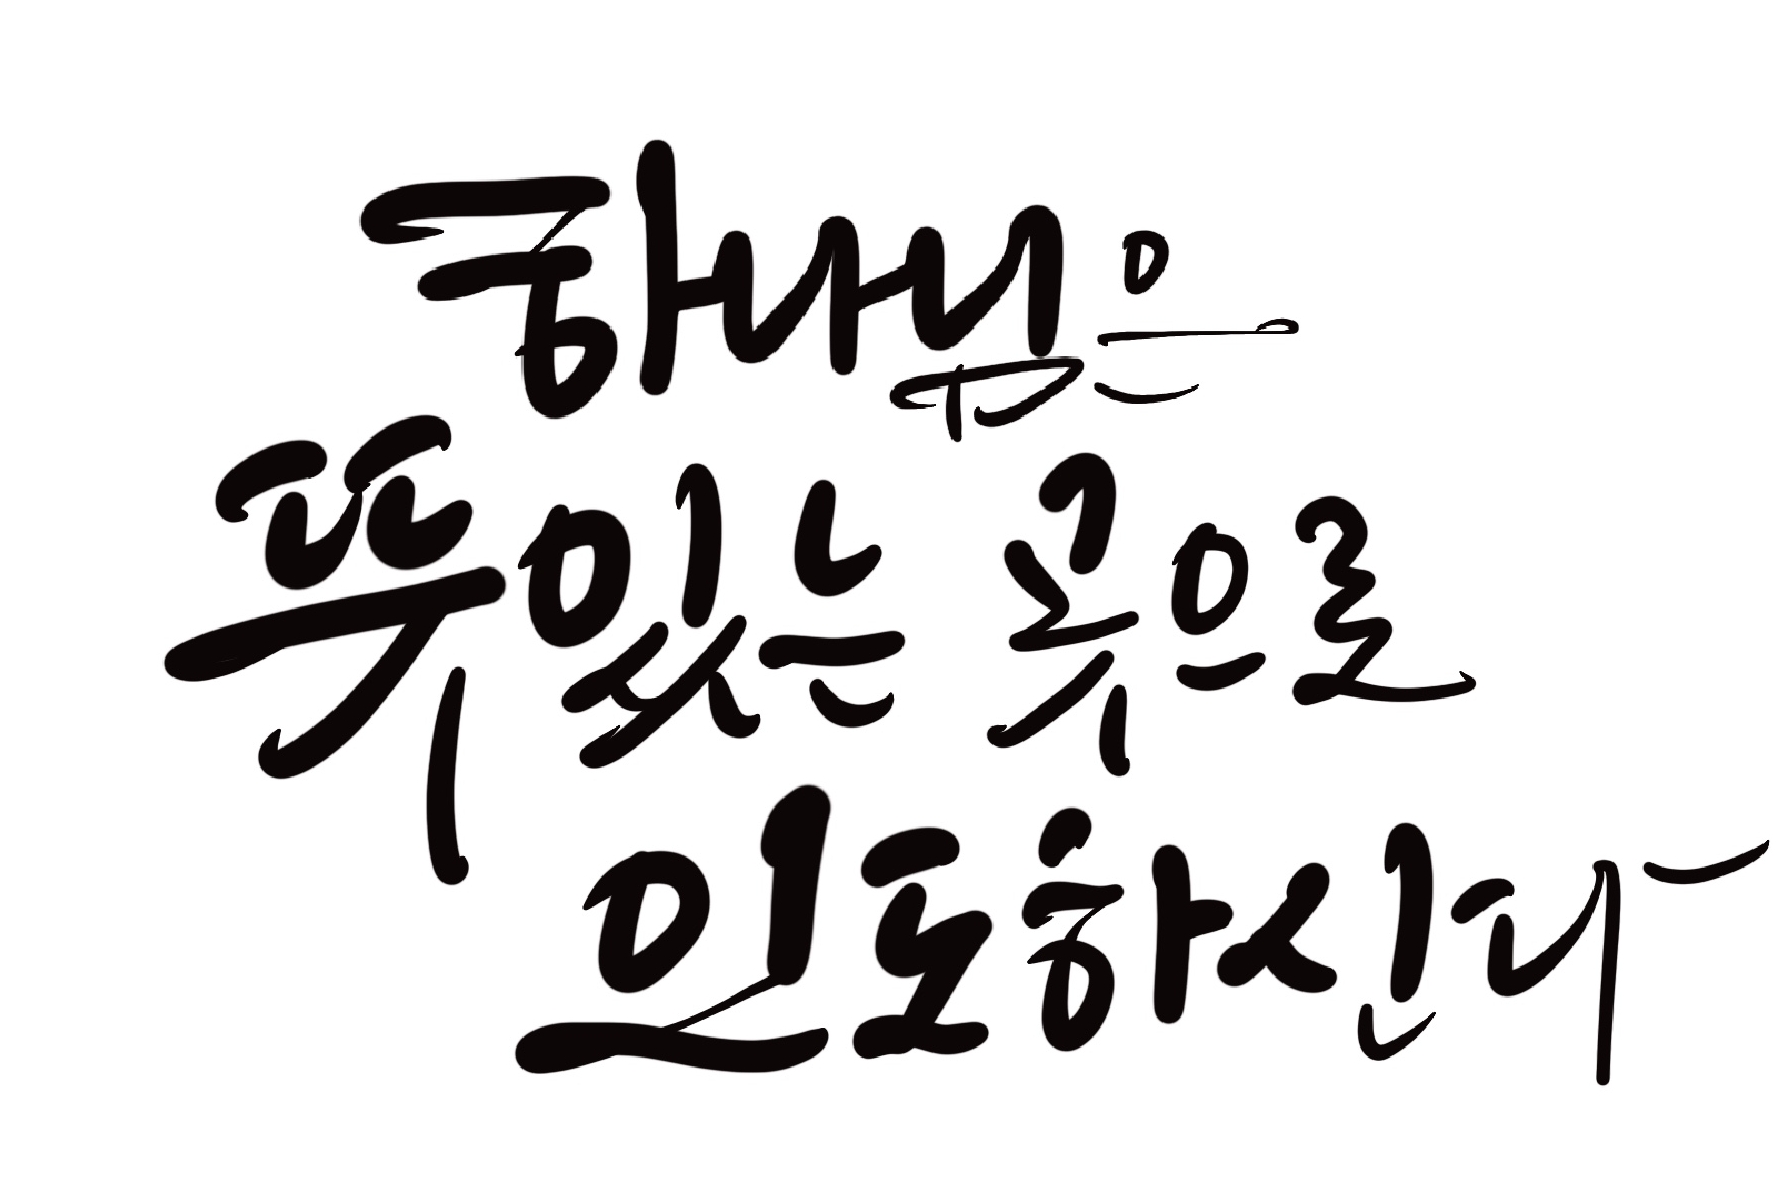 하나님은
뜻있는 곳으로
인도하신다